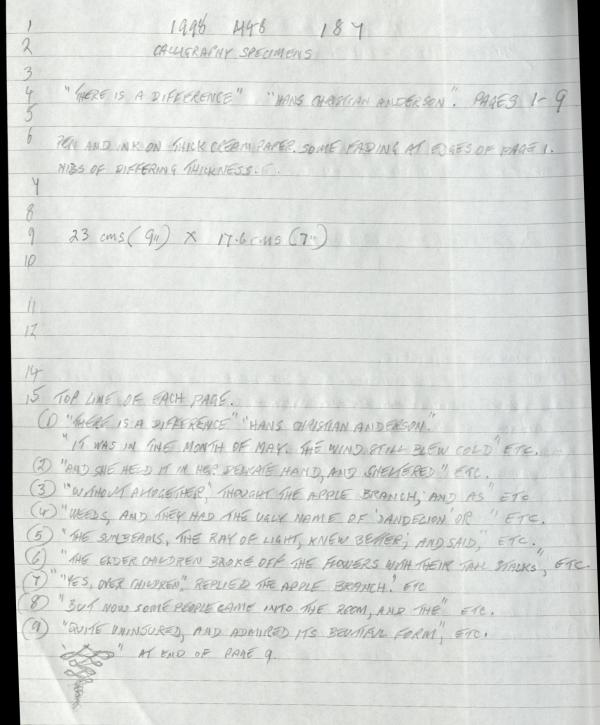 1 1998 448 187
2 CALLIGRAPHY SPECIMENS
3
4 "THERE IS A DIFFERENCE" "HANS CHRISTIAN ANDERSON". PAGES 1-9
5
6 PEN AND INK ON THICK CREAM PAPER. SOME FADING AT EDGES OF PAGE 1.
NIBS OF DIFFERING THICKNESS.
7
8
9 23 cms (9") X 17.6 cms (7")
10
11
12
14
15 TOP LINE OF EACH PAGE.
(1) "THERE IS A DIFFERENCE" "HANS CHRISTIAN ANDERSON."
"IT WAS IN THE MONTH OF MAY. THE WIND STILL BLEW COLD" ETC.
(2) "AND SHE HELD IT IN HER DELICATE HAND, AND SHELTERED" ETC.
(3) "'WITHOUT ALTOGETHER,' THOUGHT THE APPLE BRANCH, AND AS" ETC
(4) "WEEDS, AND THEY HAD THE UGLY NAME OF 'DANDELION' OR " ETC.
(5) "THE SUNBEAMS, THE RAY OF LIGHT, KNEW BETTER; AND SAID," ETC.
(6) "THE ELDER CHILDREN BROKE OFF THE FLOWERS WITH THEIR TALL STALKS", ETC.
(7) "YES, OVER CHILDREN", REPLIED THE APPLE BRANCH.' ETC
(8) "BUT NOW SOME PEOPLE CAME INTO THE ROOM, AND THE" ETC.
(9) "QUITE UNINJURED, AND ADMIRED ITS BEUTIFUL FORM", ETC.
" AT END OF PAGE 9.